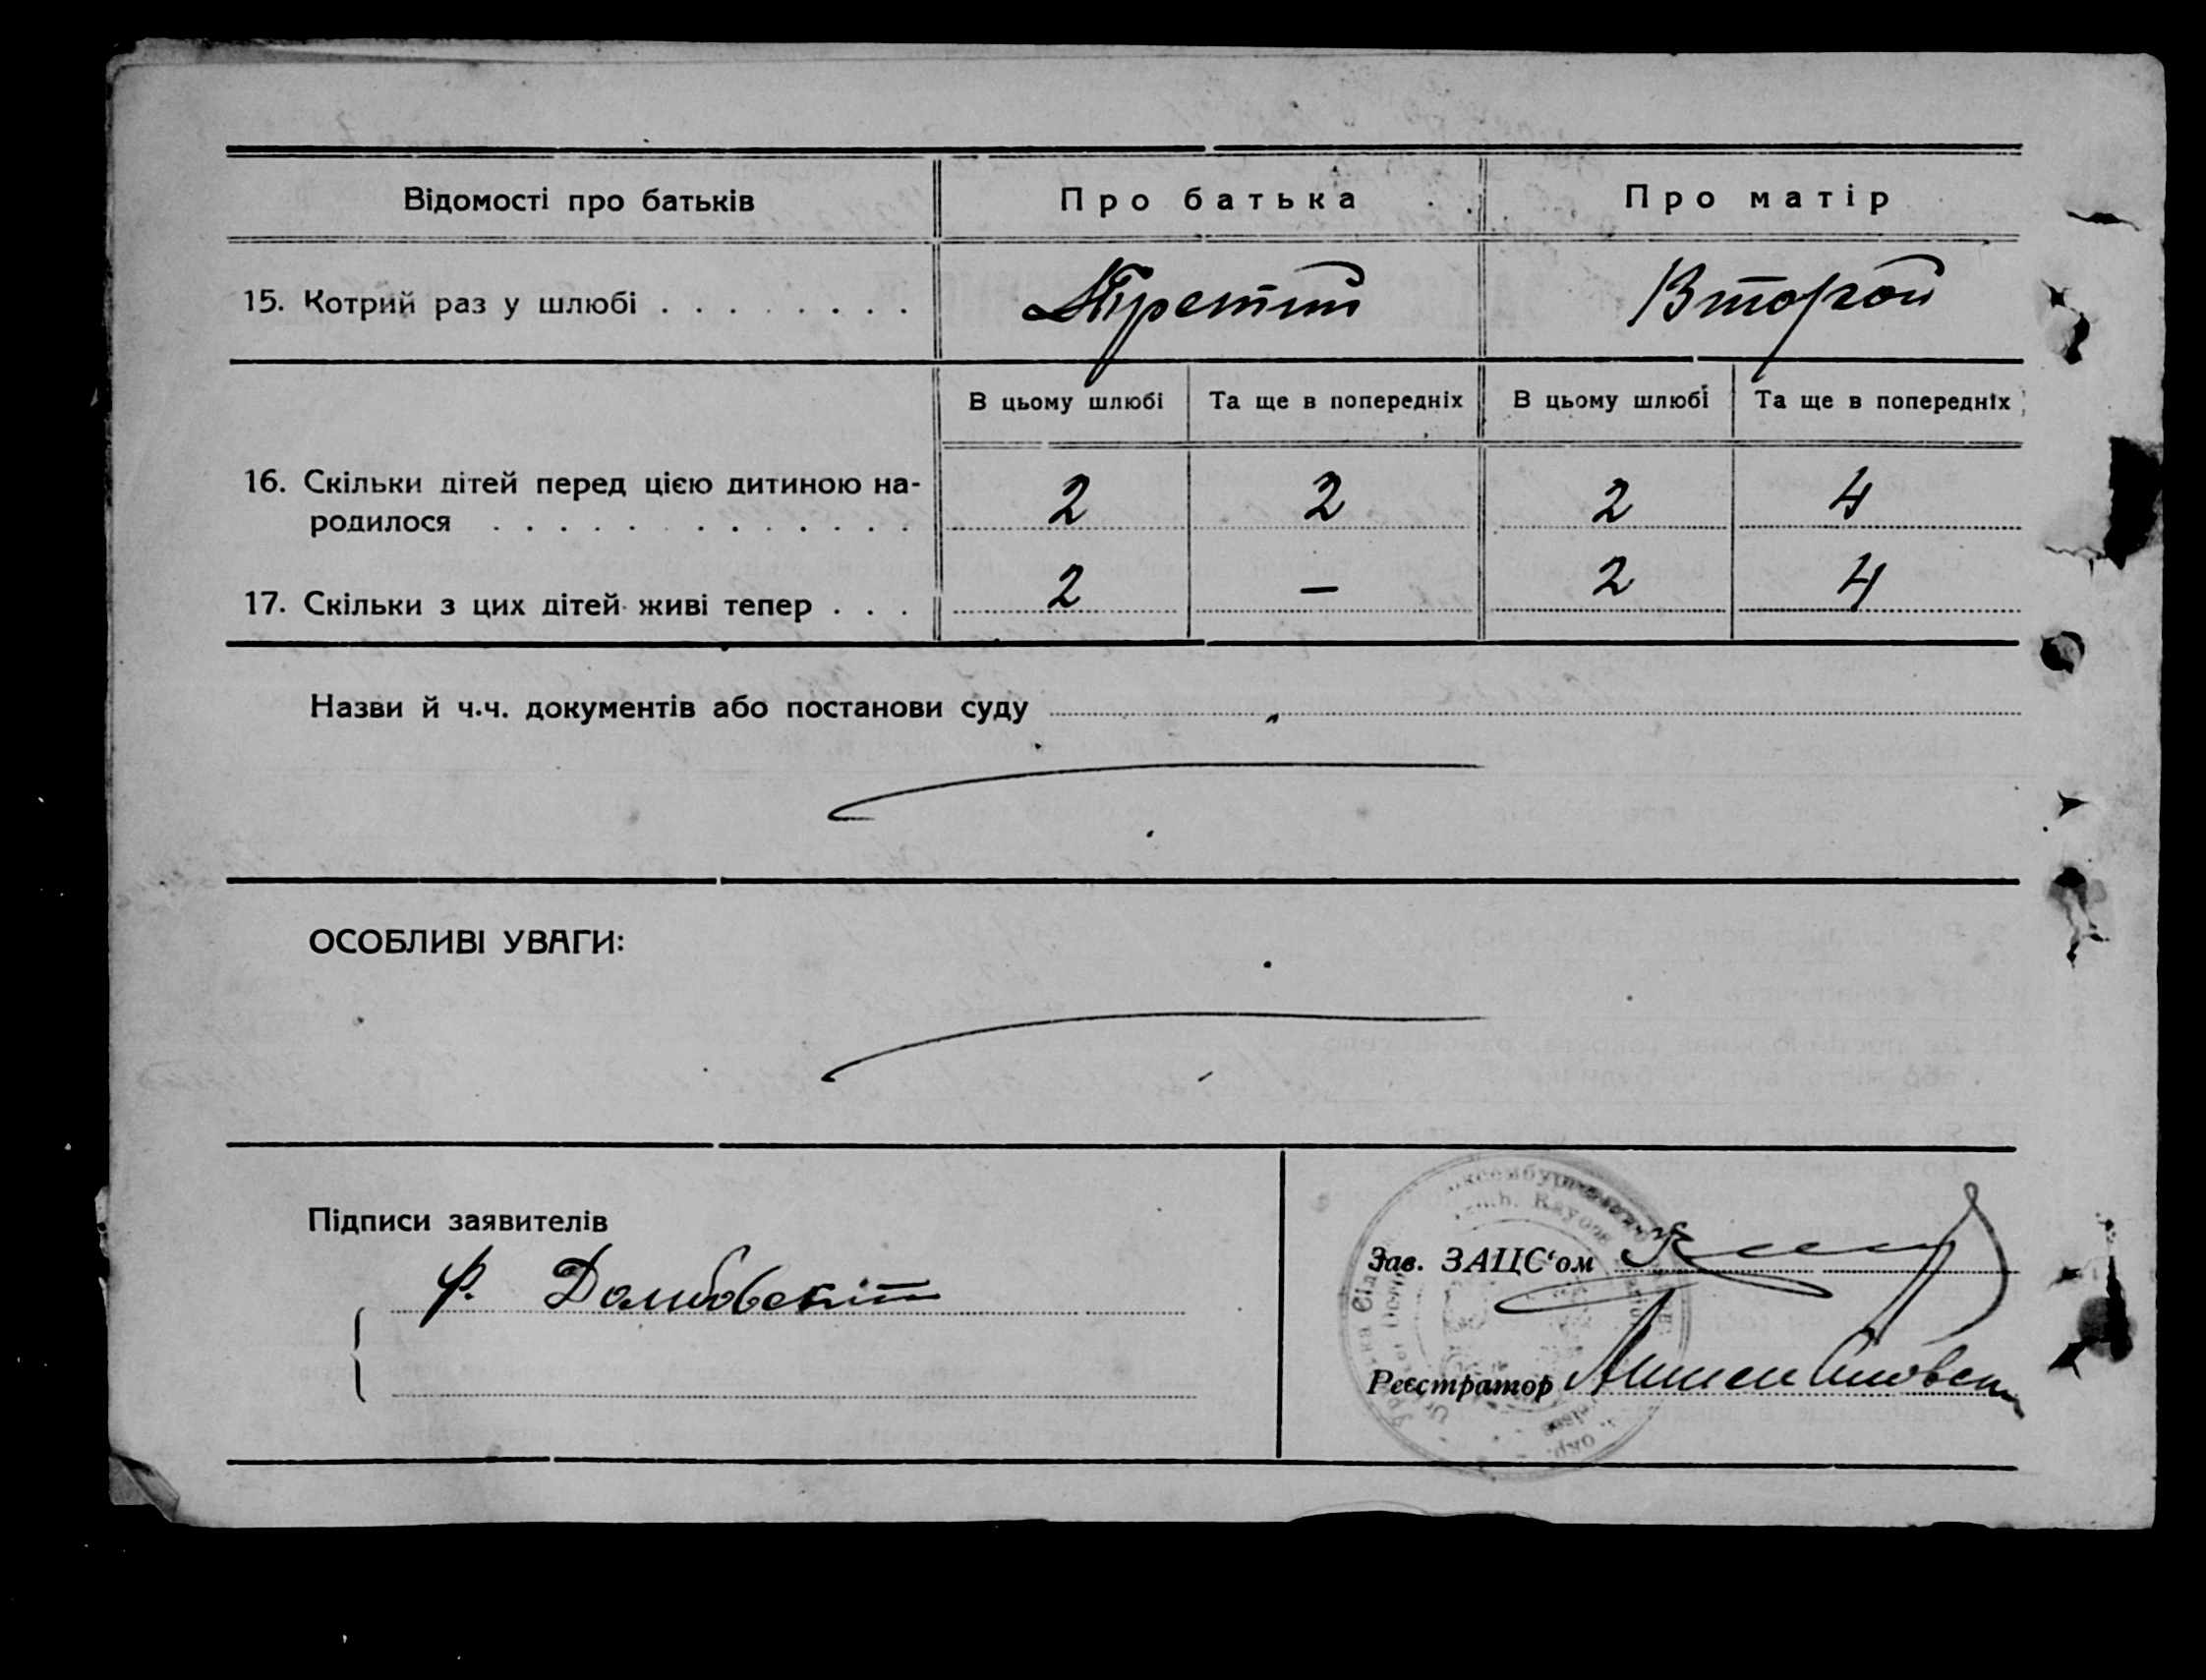 Відомості про батьків
Про батька
Про матір
15. Котрий раз у шлюбі . . . . . . . .
Третий
Второй
В цьому шлюбі
Та ще в попередніх
В цьому шлюбі
Та ще в попередніх
16. Скільки дітей перед цією дитиною на-
родилося . . . . . . . . . . . . .
2
2
2
4
17. Скільки з цих дітей живі тепер . . .
2
—
2
4
Назви й ч.ч. документів або постанови суду
ОСОБЛИВІ УВАГИ:
Підписи заявителів
Ф.
Зав. ЗАЦС‘ом
Реєстратор